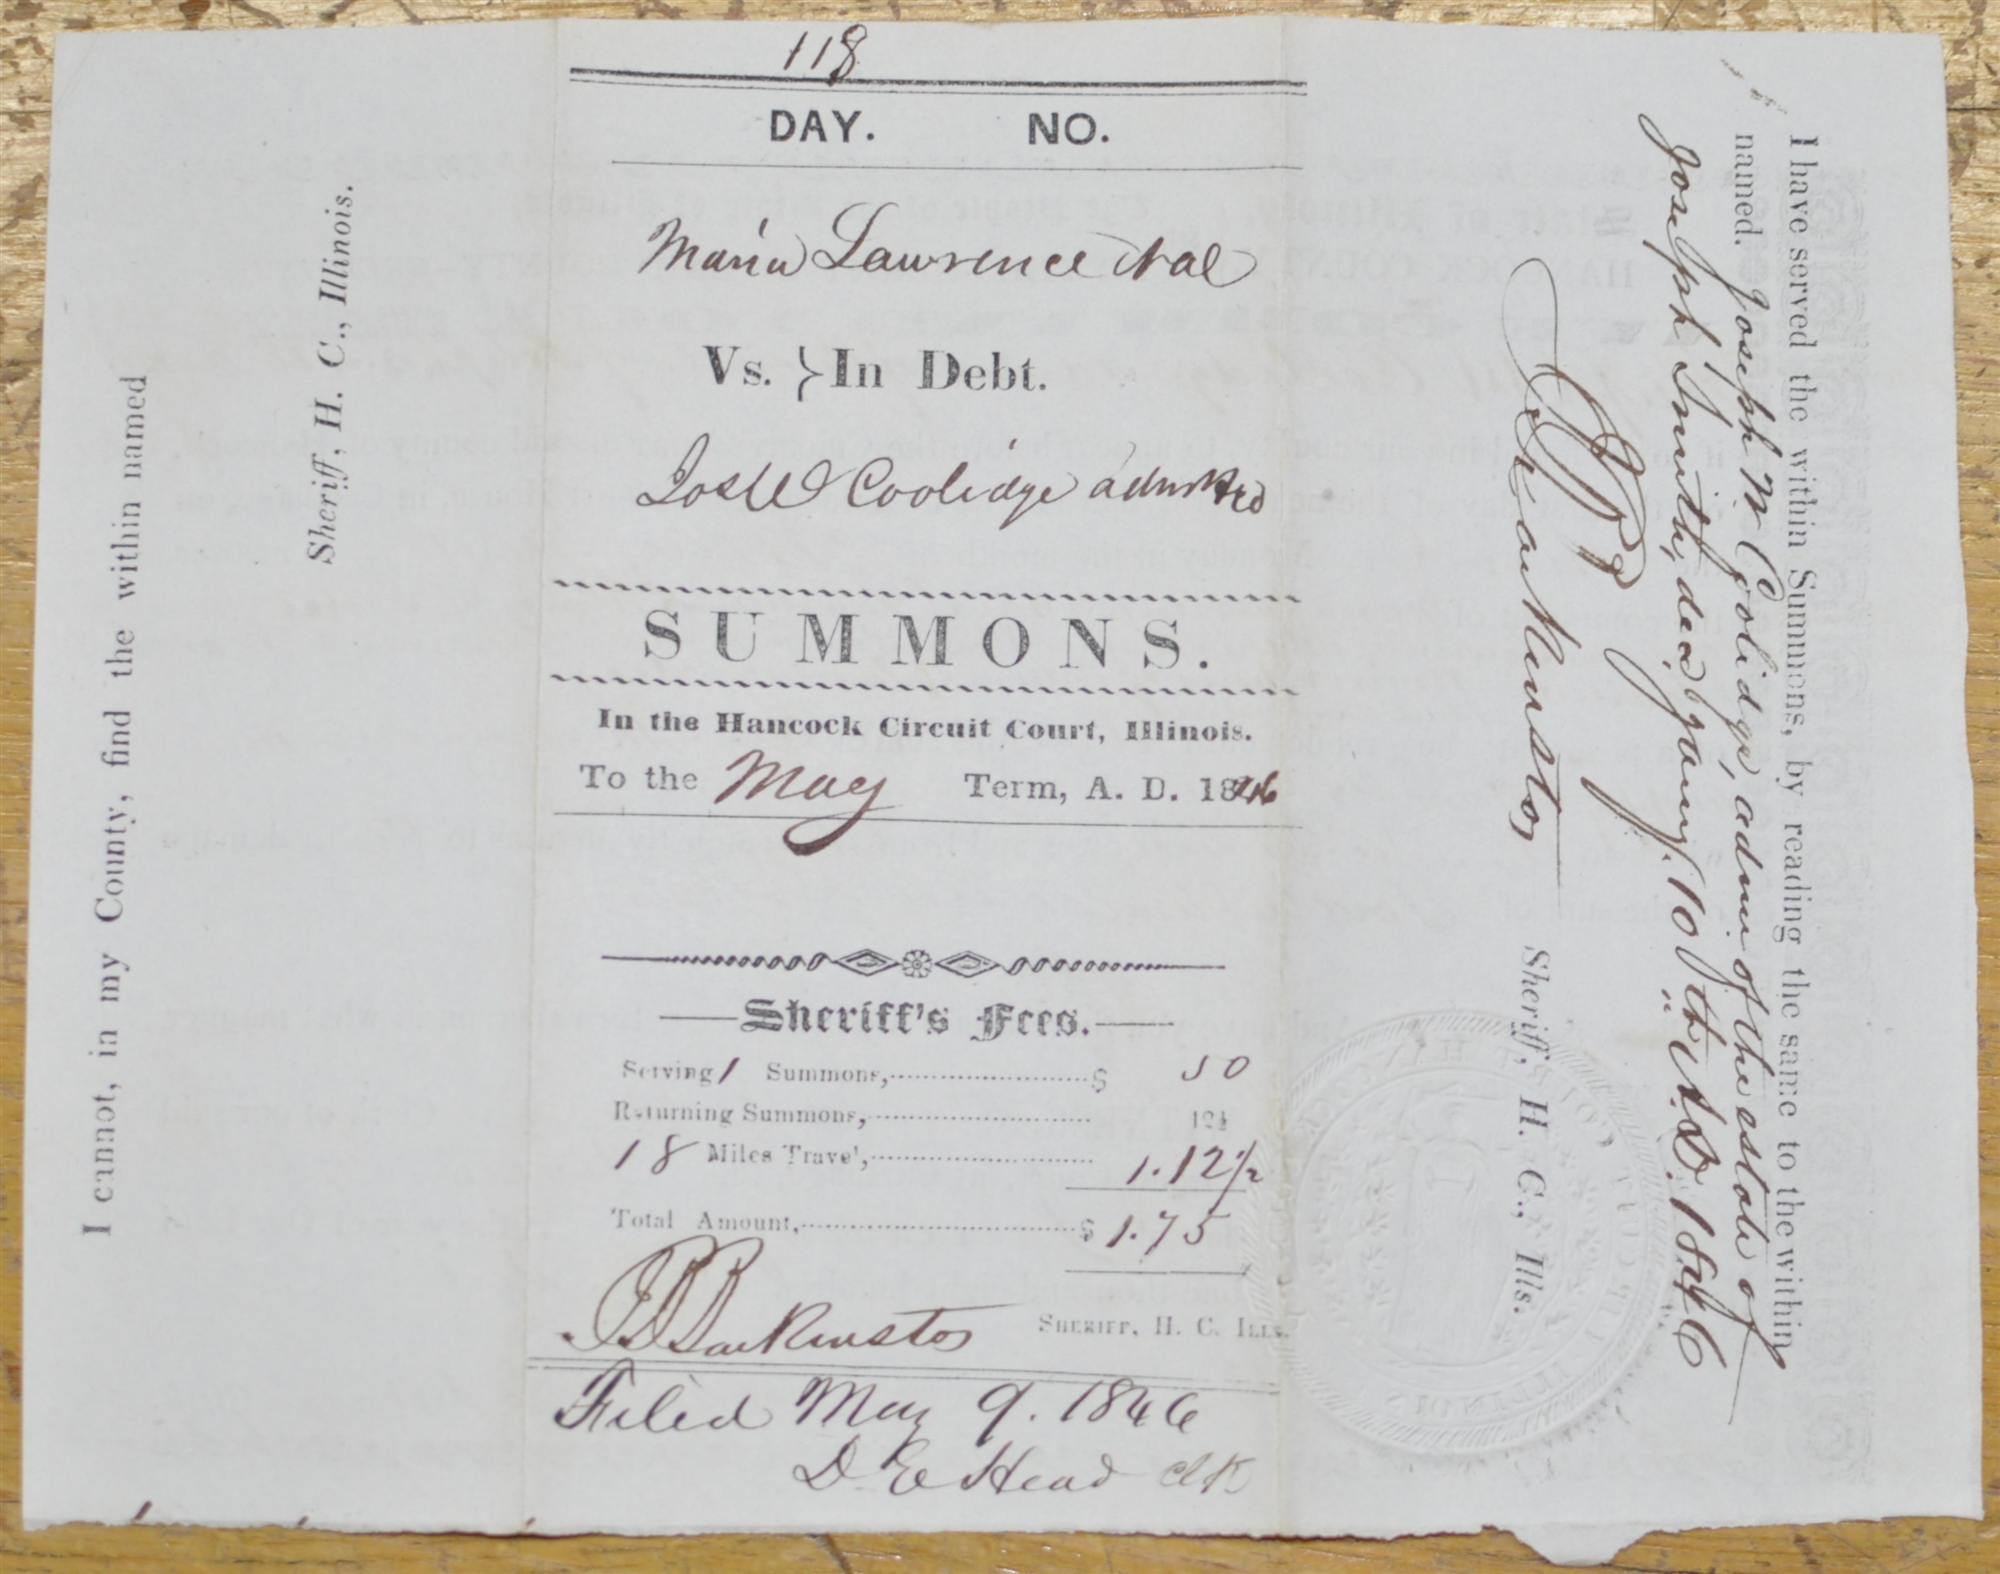 118
DAY. NO.
Maria Lawrence et al
Vs. } In Debt.
Jos W Coolidge admr &c
SUMMONS.
In the Hancock Circuit Court, Illinois.
To the May Term, A. D. 1846
Sheriff's Fees.
Serving 1 Summons, $ 50
Returning Summons, 12½
18 Miles Travel, 1.12½
Total Amount, $ 1.75
J B Backenstos SHERIFF, H. C. ILLS.
Filed May 9. 1846
D. E. Head clk
I cannot, in my County, find the within named
Sheriff, H. C., Illinois.
I have served the within Summons, by reading the same to the within
named. Joseph W Coolidge, admr of the estate of
Joseph Smith, decd Jany. 10th A.D. 1846
J B Backenstos Sheriff, H. C., Ills.